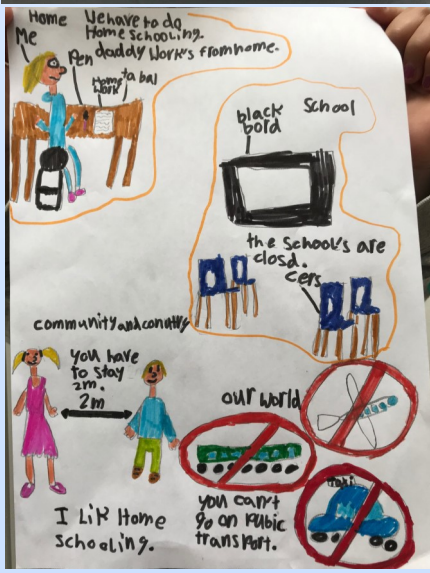 Home
We have to do
Home schooling.
daddy work's from home.
Me
Pen
Home
work
ta bal
School
black
bord
the School's are
closd.
cers
community and conutry
you have
to stay
2m.
2m
our world
taxi
you can't
go on pubic
transport.
I lik Home
schooling.